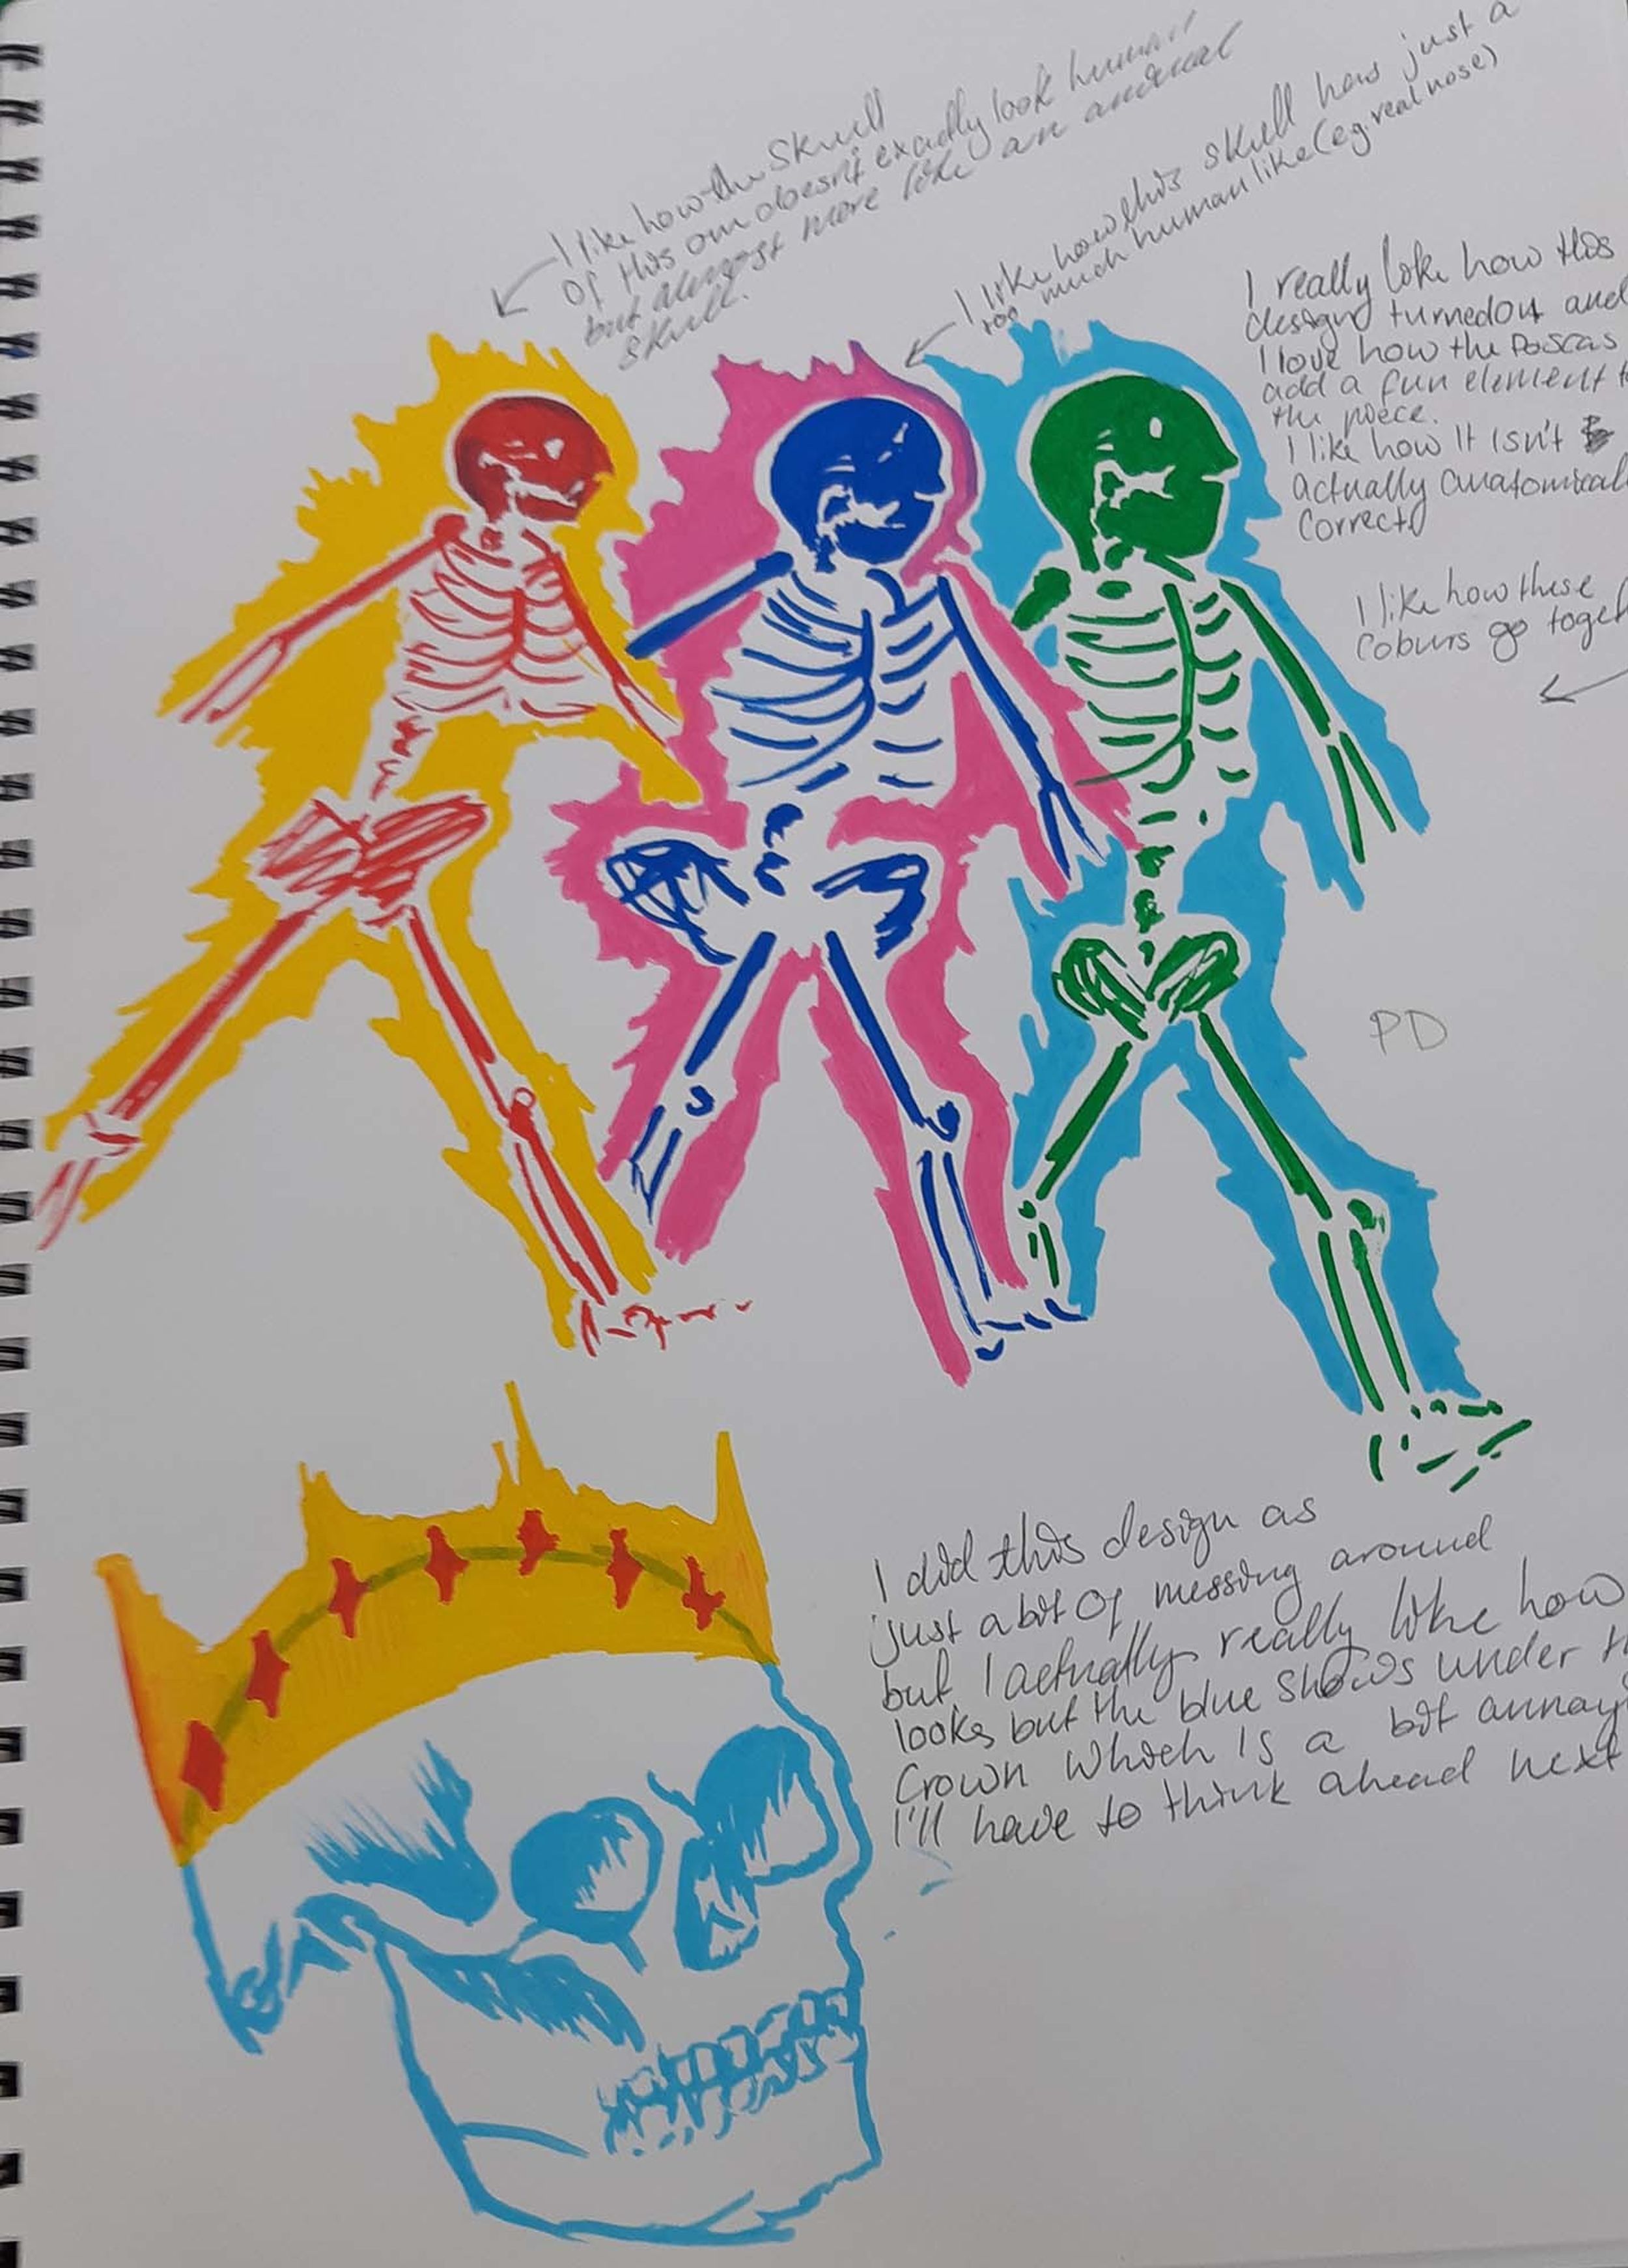 I like how the skull
of this one doesn't exactly look human
but almost more like an animal
skull.
I like how this skull has just a
too much human like (eg. real nose)
I really like how this
design turned out and
I love how the Poscas
add a fun element t
the piece.
I like how it isn't
actually anatomical
correct
I like how these
colours go toget
PD
I did this design as
just a bit of messing around
but I actually really like how
looks but the blue shows under th
crown which is a bit annoy
I'll have to think ahead next